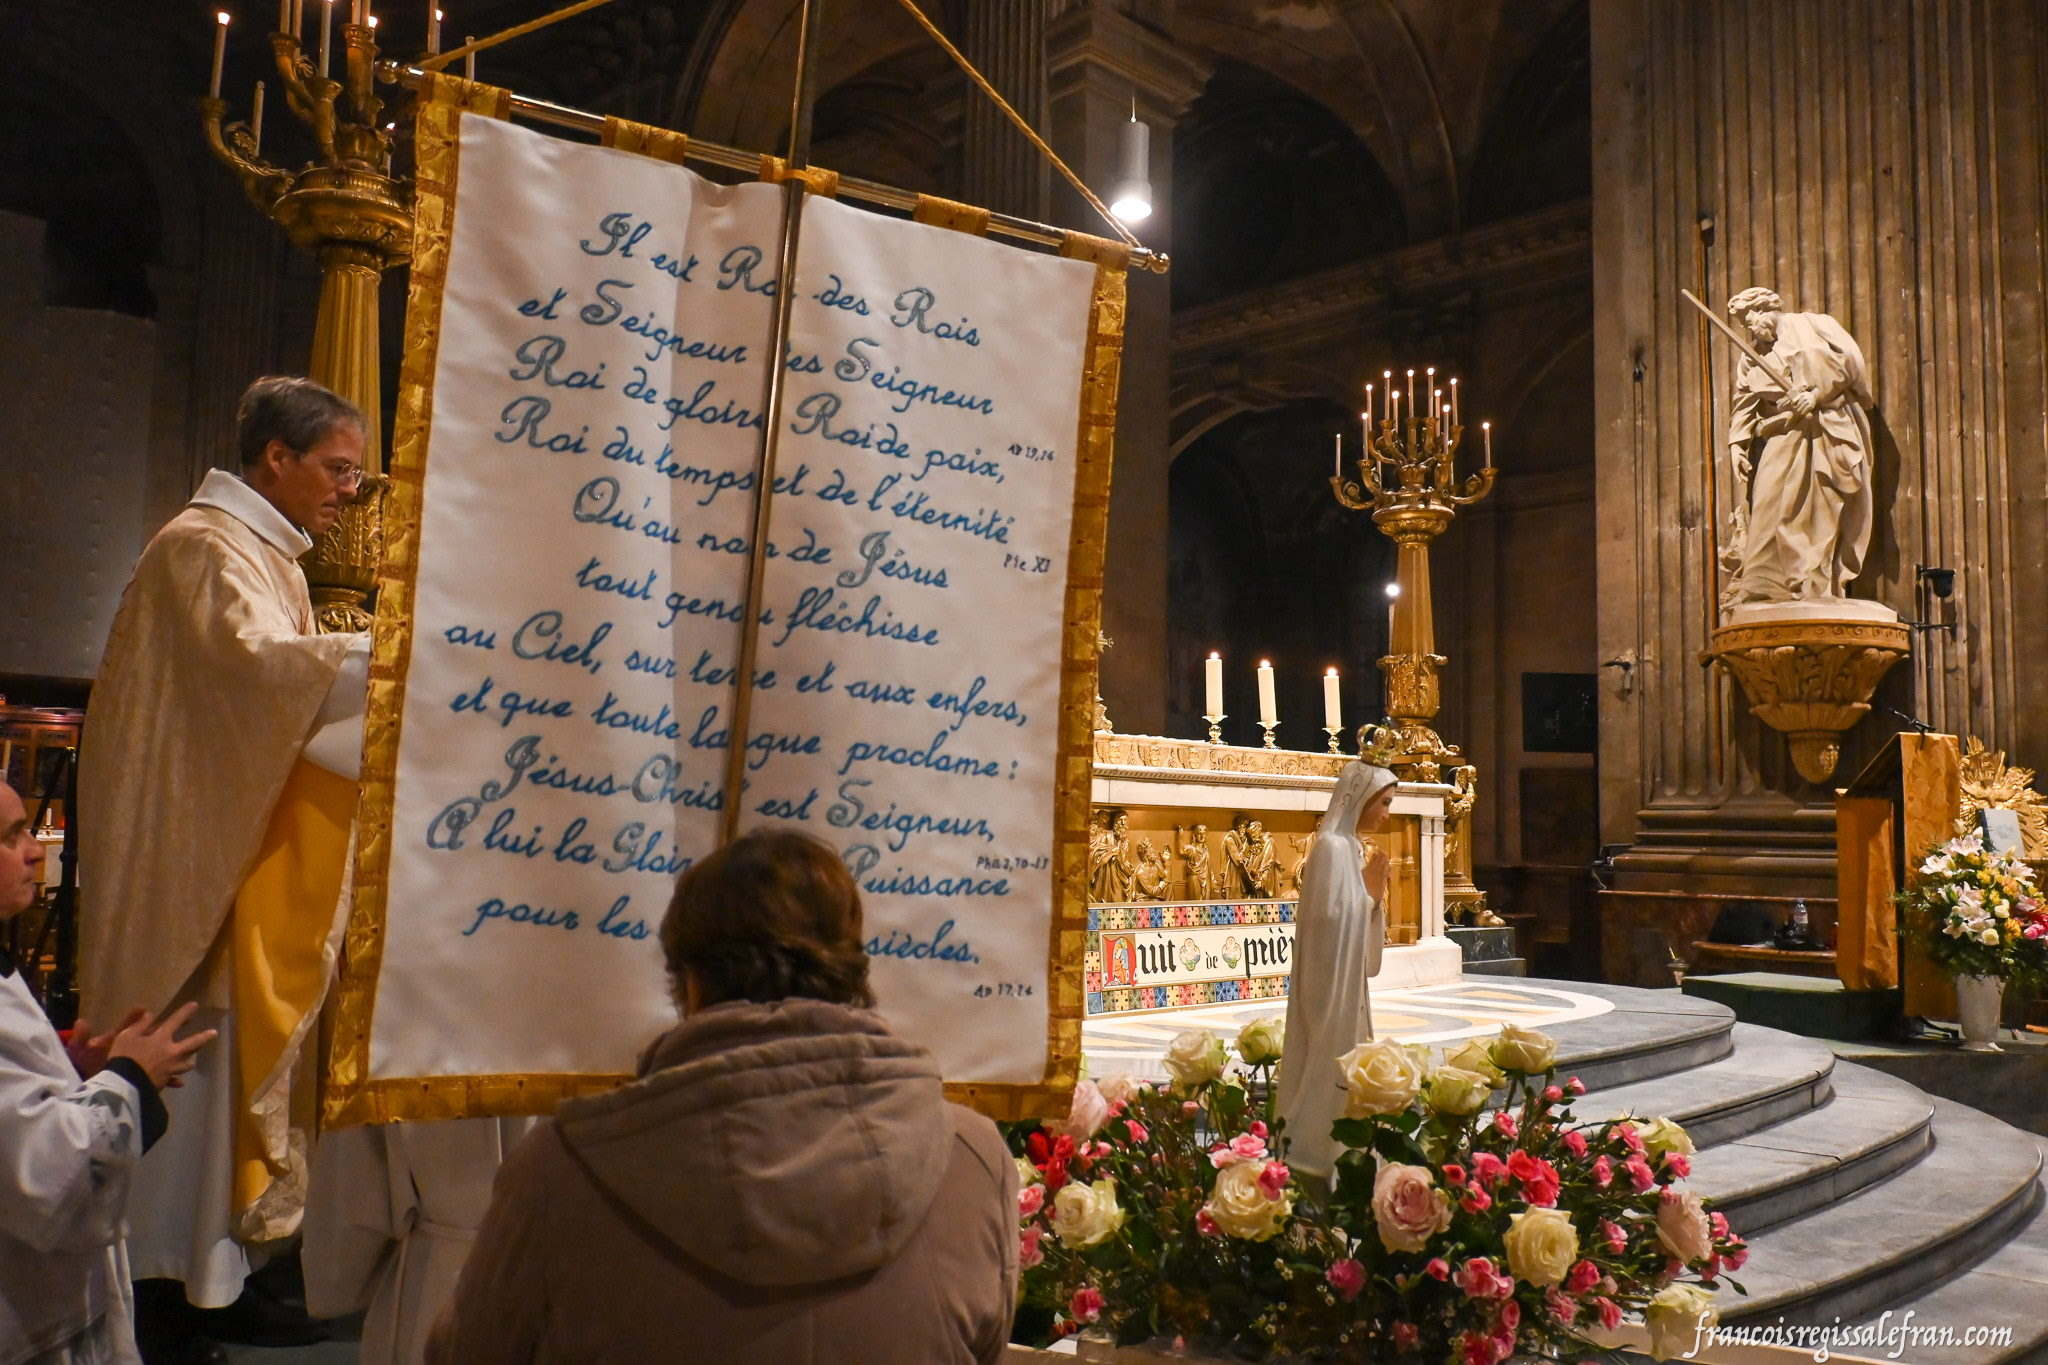 Il est Roi des Rois
et Seigneur des Seigneur
Ap 19,16
Roi de gloire Roi de paix,
Roi du temps et de l'éternité
Pie XI
Qu'au nom de Jésus
tout genou fléchisse
au Ciel, sur terre et aux enfers,
et que toute langue proclame :
Jésus-Christ est Seigneur,
Phil 2, 10-11
A lui la Gloire Puissance
pour les siècles.
Nuit de prière
francoisregissalefran.com